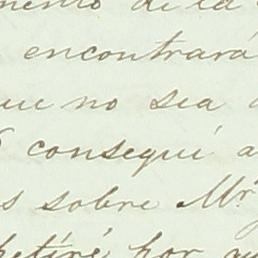 mento de la
encontrará
que no sea
conseguí a
s sobre Mr
petiré por